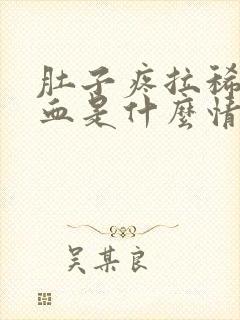 肚子疼拉稀
血是什麼情
吴某良